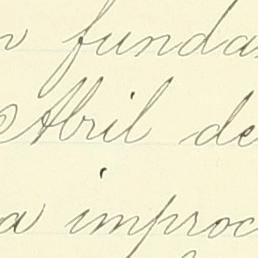 funda
Abril de
a improc